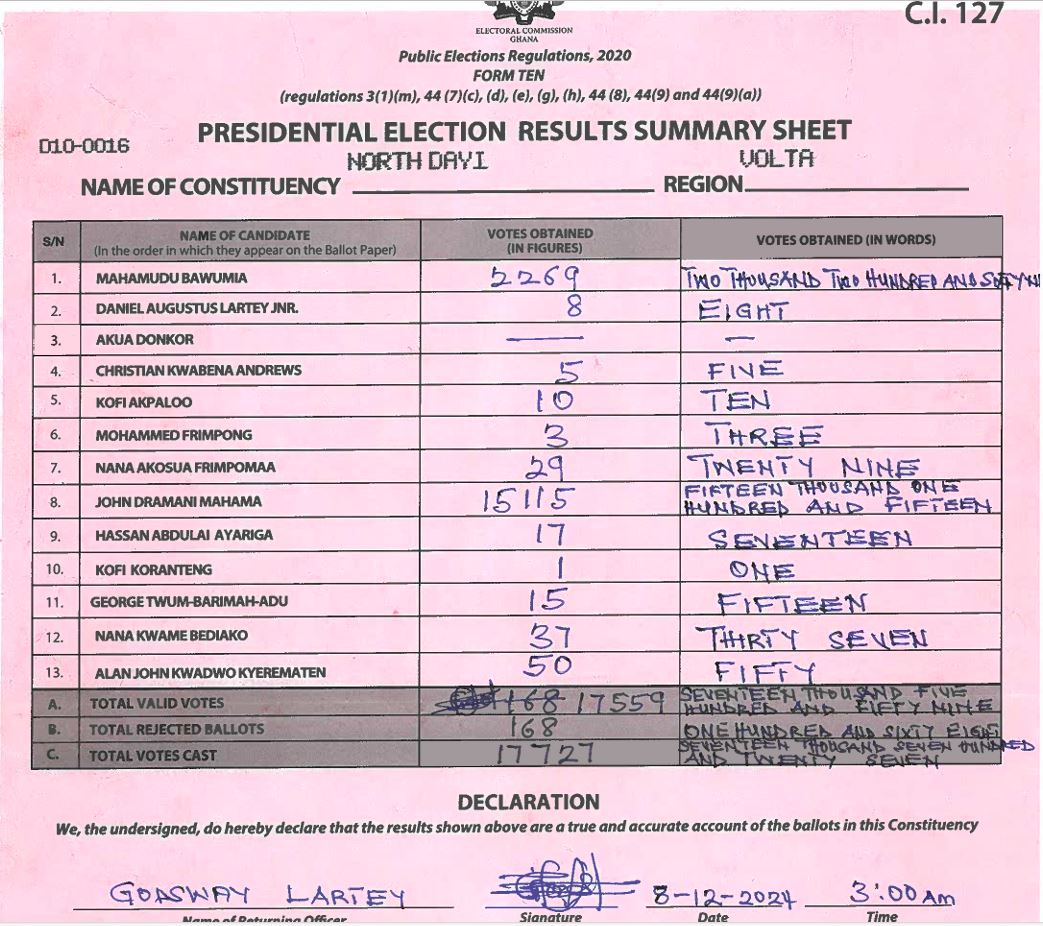 C.I. 127
ELECTORAL COMMISSION
GHANA
Public Elections Regulations, 2020
FORM TEN
(regulations 3(1)(m), 44 (7)(c), (d), (e), (g), (h), 44 (8), 44(9) and 44(9)(a))
PRESIDENTIAL ELECTION RESULTS SUMMARY SHEET
D10-0016
NORTH DAYI VOLTA
NAME OF CONSTITUENCY REGION
S/N NAME OF CANDIDATE (In the order in which they appear on the Ballot Paper) VOTES OBTAINED (IN FIGURES) VOTES OBTAINED (IN WORDS)
1. MAHAMUDU BAWUMIA 2269 TWO THOUSAND TWO HUNDRED AND
2. DANIEL AUGUSTUS LARTEY JNR. 8 EIGHT
3. AKUA DONKOR — —
4. CHRISTIAN KWABENA ANDREWS 5 FIVE
5. KOFI AKPALOO 10 TEN
6. MOHAMMED FRIMPONG 3 THREE
7. NANA AKOSUA FRIMPOMAA 29 TWENTY NINE
8. JOHN DRAMANI MAHAMA 15115 FIFTEEN THOUSAND ONE
HUNDRED AND FIFTEEN
9. HASSAN ABDULAI AYARIGA 17 SEVENTEEN
10. KOFI KORANTENG 1 ONE
11. GEORGE TWUM-BARIMAH-ADU 15 FIFTEEN
12. NANA KWAME BEDIAKO 37 THIRTY SEVEN
13. ALAN JOHN KWADWO KYEREMATEN 50 FIFTY
A. TOTAL VALID VOTES 168 17559 SEVENTEEN THOUSAND FIVE
HUNDRED AND FIFTY NINE
B. TOTAL REJECTED BALLOTS 168 ONE HUNDRED AND SIXTY EIGHT
C. TOTAL VOTES CAST 17727 SEVENTEEN THOUSAND SEVEN HUNDRED
AND TWENTY SEVEN
DECLARATION
We, the undersigned, do hereby declare that the results shown above are a true and accurate account of the ballots in this Constituency
GODSWAY LARTEY 8-12-2024 3:00 AM
Name of Returning Officer Signature Date Time